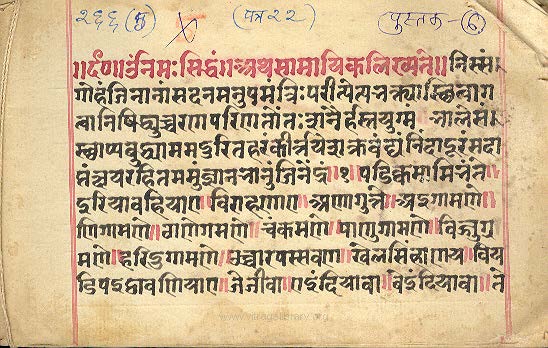 २६६(क) (पत्र २२) पुस्तक-(6)
॥र्द०॥ॐनमःसिद्धं॥अथसामायिकलिख्यते॥निस्सं
गोहंजिनानांसदनमनुपमंत्रिःपरीत्येत्यभक्त्यास्थित्वाग
त्वानिषिद्युच्चरणपरिणतोंतःशनैर्हस्तयुग्मं भालेसं
स्थाप्यबुद्ध्याममदुरितहरंकीर्त्तयेशक्रवंद्यंनिंदादूरंसदा
संक्षयरहितममुंज्ञानभानुंजिनेंद्रं॥१॥पडिक्कमामिभंते
इरियावहियाए॥विराहणाए॥अणागुत्ते॥अइगमणे॥
णिगामणे॥ठाणेगमणे॥चंकमणे॥पाणुगमणे॥विज्जुग
मणे॥हरिदुगमणे॥उच्चारपस्सवणे॥खेलसिंहाणय॥विय
डिपइट्ठावणियाए॥जेजीवा॥एइंदियावा॥बेइंदियावा॥ते